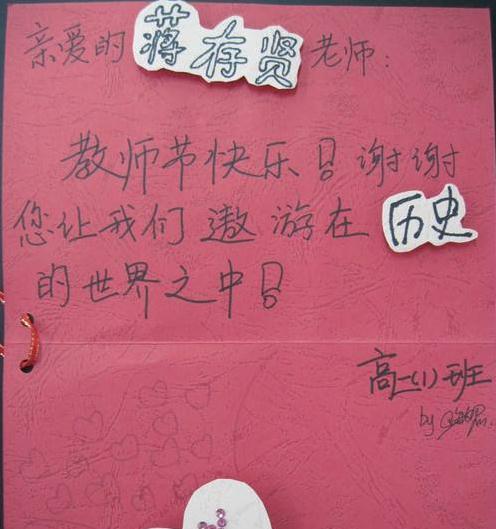 亲爱的蒋存贤老师：
教师节快乐！谢谢
您让我们遨游在历史
的世界之中！
高一(1)班
by